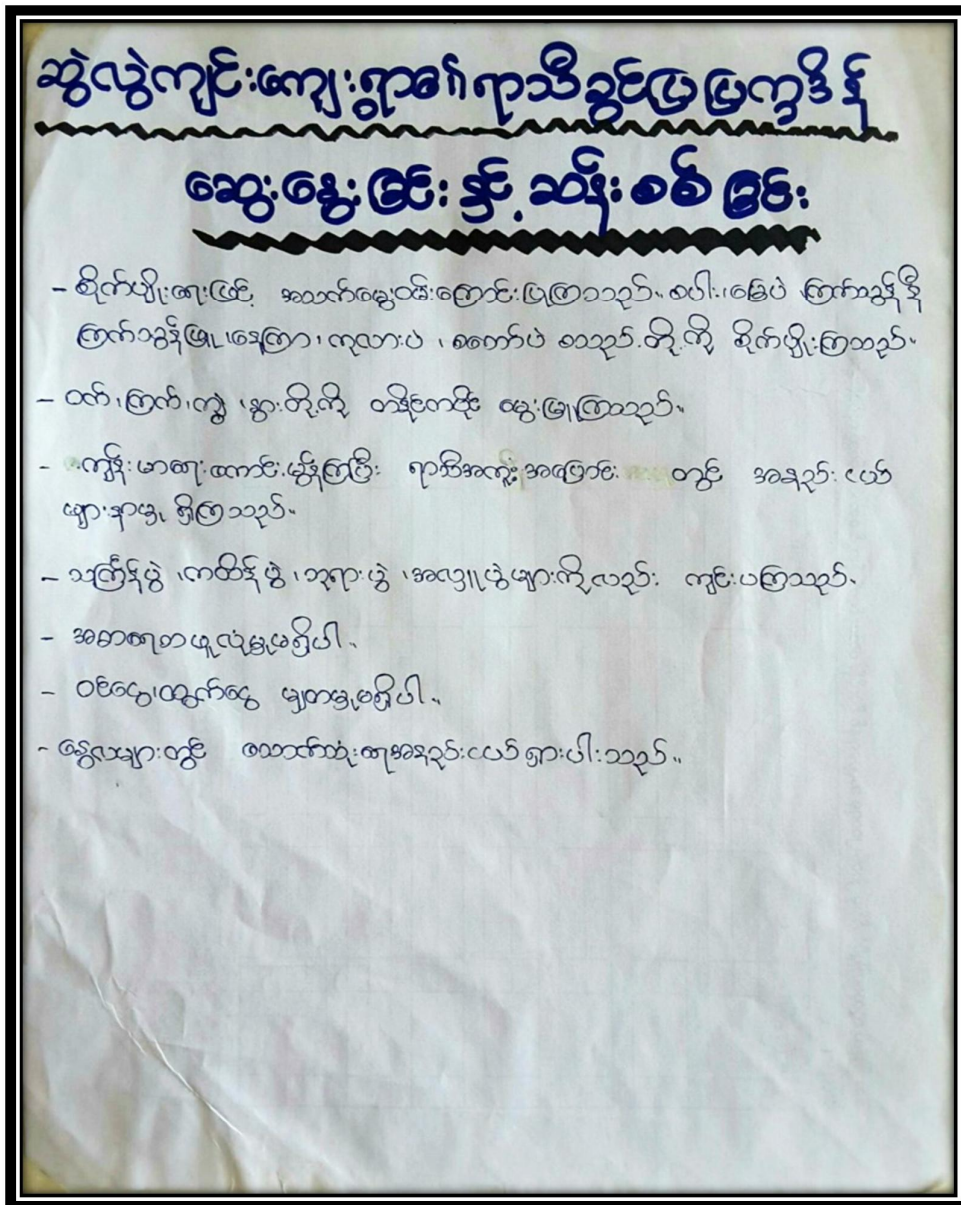 ဆွဲလွဲကျင်းကျေးရွာ၏ ရာသီခွင်ပြ ပြက္ခဒိန်
ဆွေးနွေးခြင်း နှင့် ဆန်းစစ်ခြင်း
- စိုက်ပျိုးရေးဖြင့် အသက်မွေးဝမ်းကြောင်းပြုကြသည်။ စပါး၊ မြေပဲ၊ ကြက်သွန်နီ
ကြက်သွန်ဖြူ၊ နေကြာ၊ ကုလားပဲ၊ စတော်ပဲ စသည်တို့ကို စိုက်ပျိုးကြသည်။
- ဝက်၊ ကြက်၊ ကျွဲ၊ နွားတို့ကို တနိုင်တပိုင် မွေးမြူကြသည်။
- ကျန်းမာရေးကောင်းမွန်ကြပြီး ရာသီအကူးအပြောင်း တွင် အနည်းငယ်
ဖျားနာမှု ရှိကြသည်။
- သင်္ကြန်ပွဲ၊ ကထိန်ပွဲ၊ ဘုရားပွဲ၊ အလှူပွဲများကိုလည်း ကျင်းပကြသည်။
- အစားရေစာ ဖူလုံမှုမရှိပါ။
- ဝင်ငွေ၊ ထွက်ငွေ မျှတမှုမရှိပါ။
- နွေလများတွင် သောက်သုံးရေအနည်းငယ် ရှားပါးသည်။